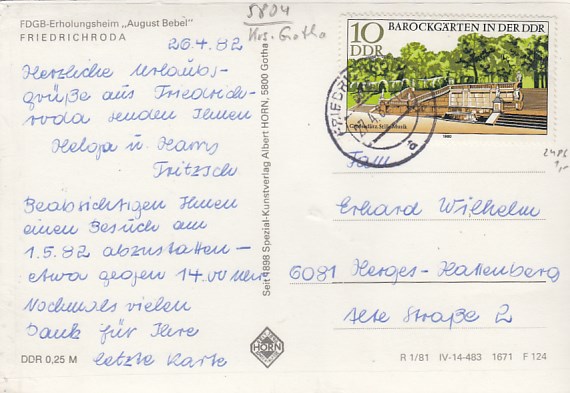 FDGB-Erholungsheim „August Bebel"
FRIEDRICHRODA
5804
Krs. Gotha
26.4.82
Herzliche Urlaubs-
grüße aus Friedrich-
roda senden Ihnen
Helga u. Harry
Fritzsch
Beabsichtigen Ihnen
einen Besuch am
1.5.82 abzustatten –
etwa gegen 14.00 Uhr
Nochmals vielen
Dank für Ihre
letzte Karte
DDR 0,25 M
Seit 1898 Spezial-Kunstverlag Albert HORN, 5800 Gotha
HORN
10
DDR
BAROCKGÄRTEN IN DER DDR
Großsedlitz Stille Musik
1980
2486
1,-
Fam
Erhard Wilhelm
6081 Herges-Hallenberg
Alte Straße 2
R 1/81 IV-14-483 1671 F 124